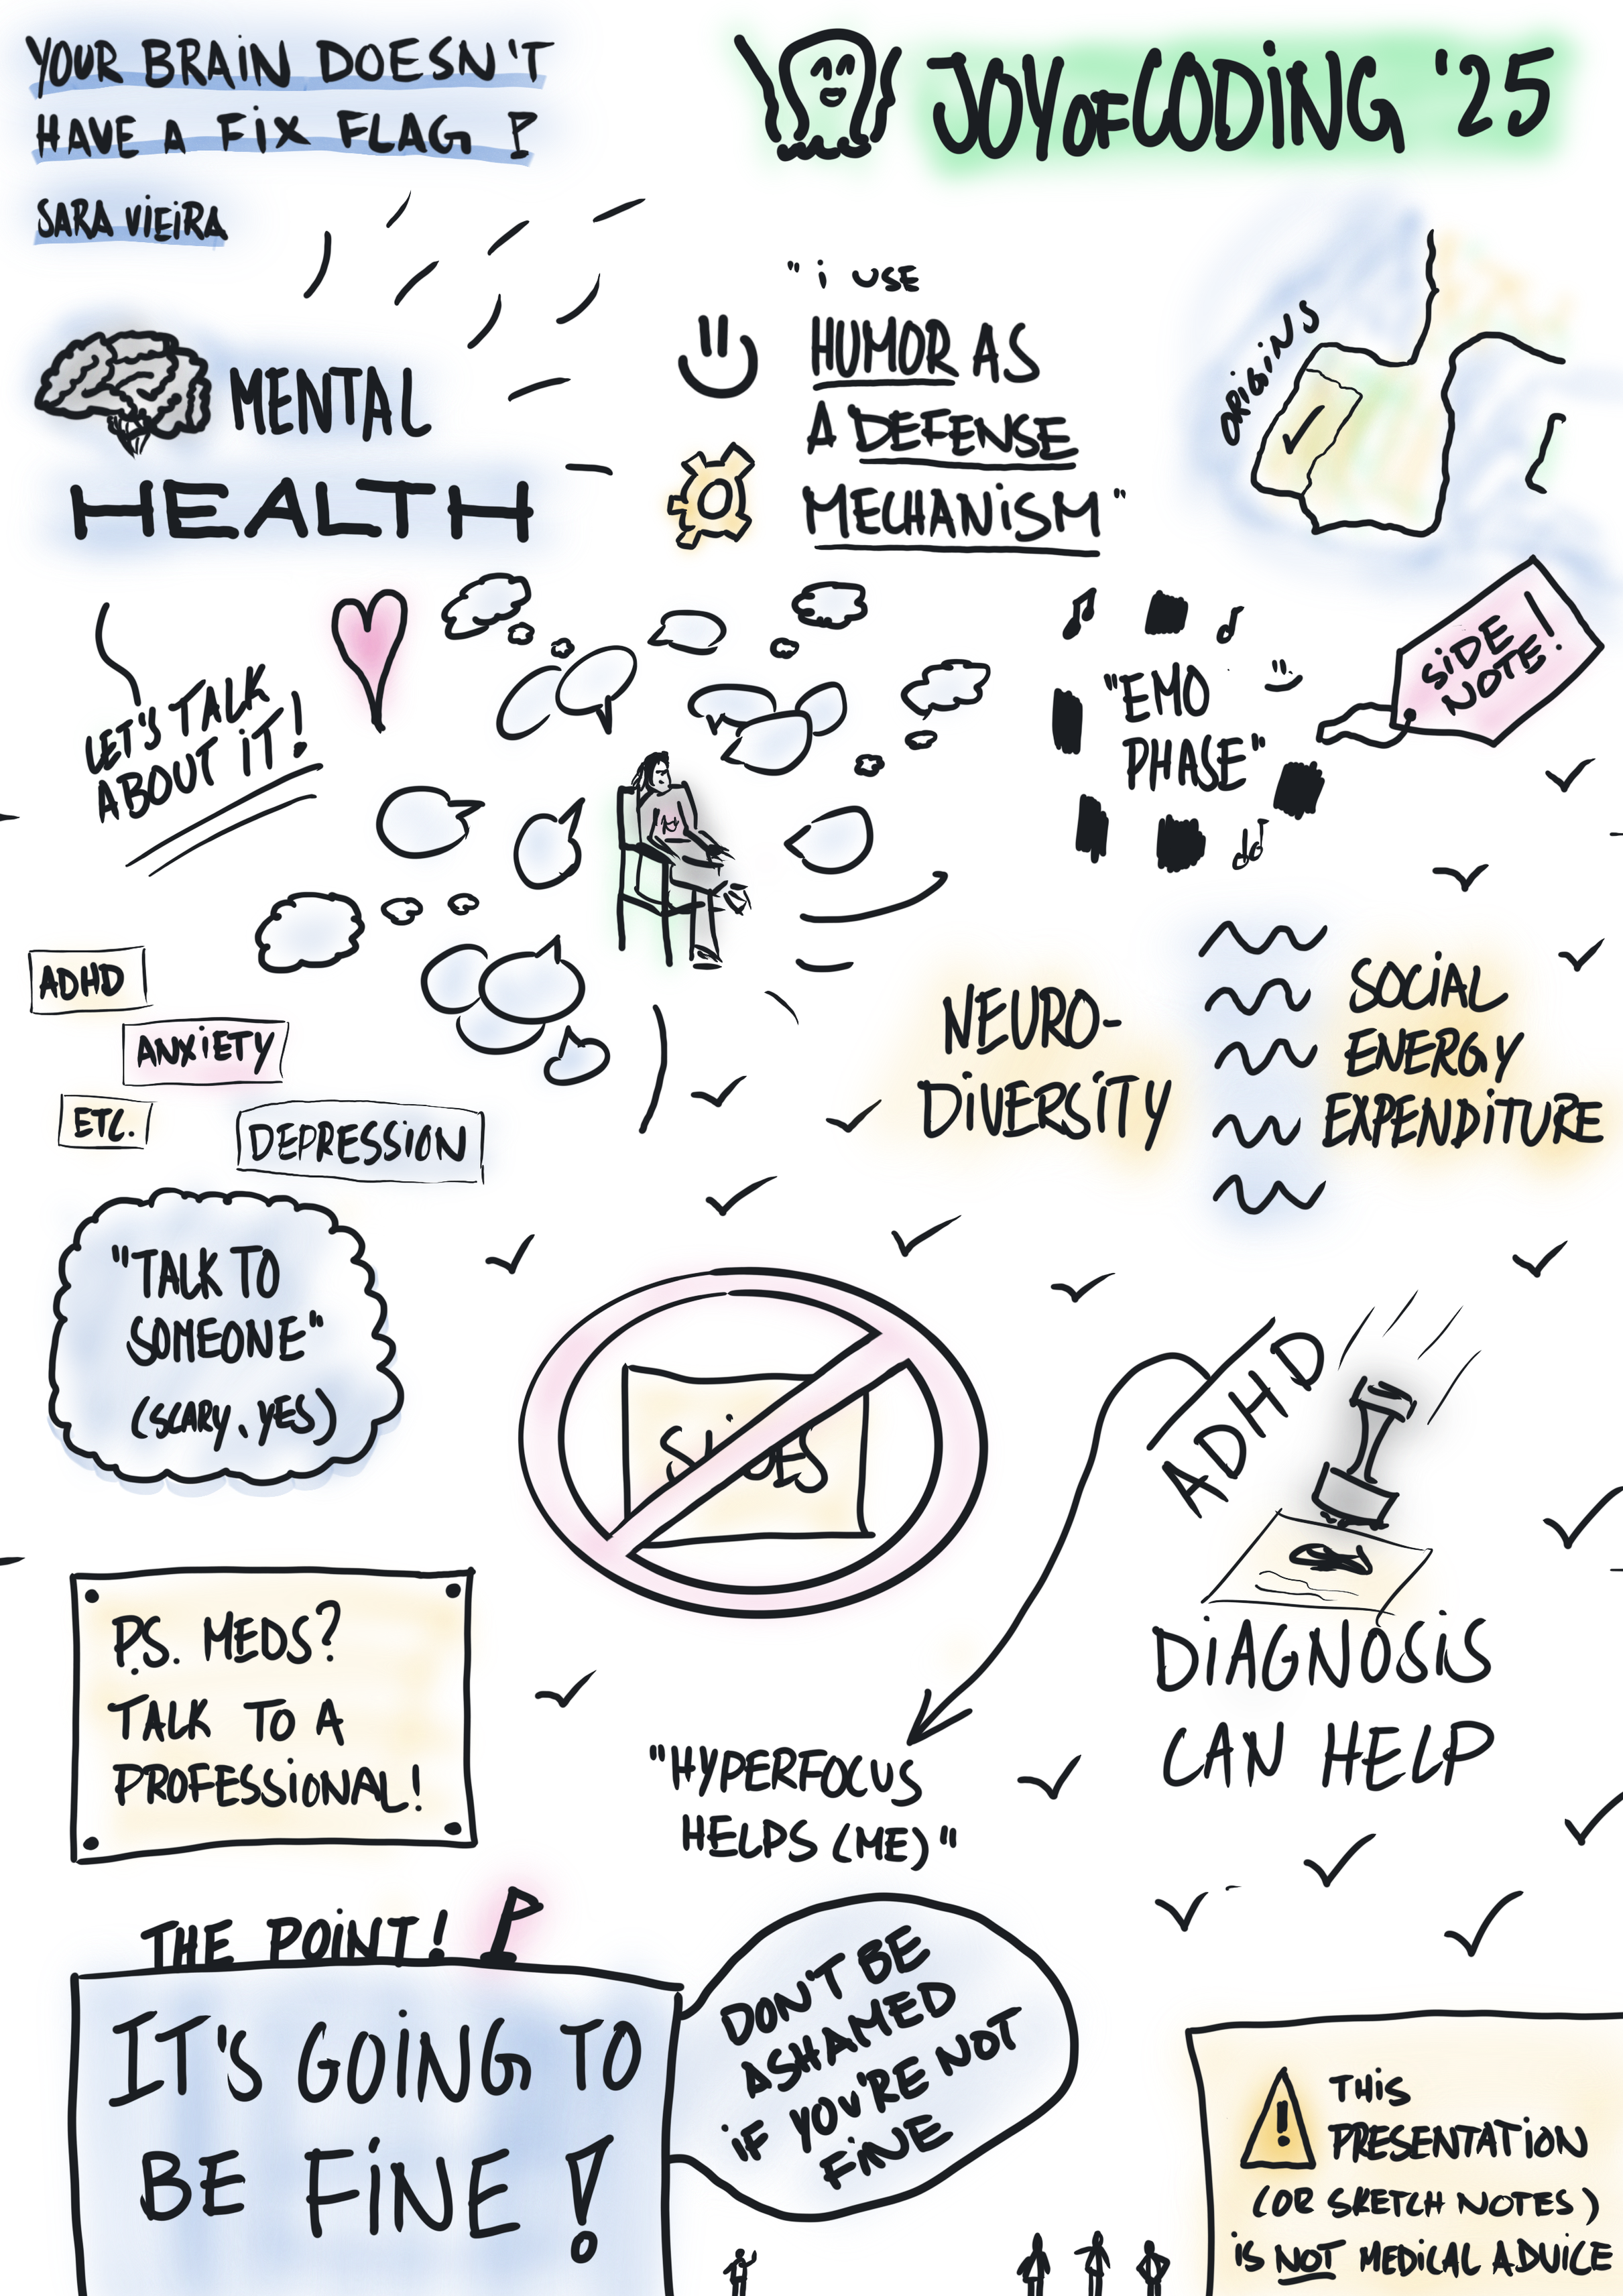 YOUR BRAIN DOESN'T
HAVE A FIX FLAG
SARA VIEIRA
JOY OF CODING '25
MENTAL
HEALTH
"I USE
HUMOR AS
A DEFENSE
MECHANISM"
ORIGINS
LET'S TALK
ABOUT IT!
"EMO
PHASE"
SIDE
NOTE!
ADHD
ANXIETY
ETC.
DEPRESSION
NEURO-
DIVERSITY
SOCIAL
ENERGY
EXPENDITURE
"TALK TO
SOMEONE"
(SCARY, YES)
SLIDES
ADHD
DIAGNOSIS
CAN HELP
"HYPERFOCUS
HELPS (ME)"
P.S. MEDS?
TALK TO A
PROFESSIONAL!
THE POINT!
IT'S GOING TO
BE FINE!
DON'T BE
ASHAMED
IF YOU'RE NOT
FINE
THIS
PRESENTATION
(OR SKETCH NOTES)
IS NOT MEDICAL ADVICE